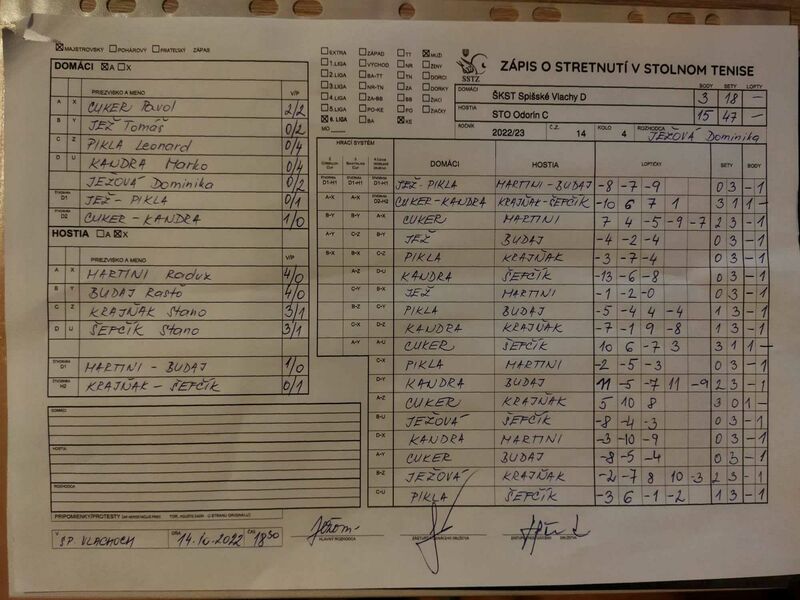 ☒ MAJSTROVSKÝ ☐ POHÁROVÝ ☐ PRIATEĽSKÝ ZÁPAS
DOMÁCI ☒A ☐X
PRIEZVISKO A MENO V/P
A X CUKER Pavol 2/2
B Y JEŽ Tomáš 0/2
C Z PIKLA Leonard 0/4
D U KANDRA Marko 0/4
JEŽOVÁ Dominika 0/2
ŠTVORHRA D1 JEŽ - PIKLA 0/1
ŠTVORHRA D2 CUKER - KANDRA 1/0
HOSTIA ☐A ☒X
PRIEZVISKO A MENO V/P
A X MARTINI Radux 4/0
B Y BUDAJ Rasťo 4/0
C Z KRAJŇAK Stano 3/1
D U ŠEFČÍK Stano 3/1
ŠTVORHRA D1 MARTINI - BUDAJ 1/0
ŠTVORHRA H2 KRAJŇAK - ŠEFČÍK 0/1
DOMÁCI
HOSTIA
ROZHODCA
PRIPOMIENKY/PROTESTY
V SP. VLACHOCH DŇA 14.10.2022 ČAS 18:30
☐ EXTRA ☐ ZÁPAD ☐ TT ☒ MUŽI
☐ 1. LIGA ☐ VÝCHOD ☐ NR ☐ ŽENY
☐ 2. LIGA ☐ BA-TT ☐ TN ☐ DORCI
☐ 3. LIGA ☐ NR-TN ☐ ZA ☐ DORKY
☐ 4. LIGA ☐ ZA-BB ☐ BB ☐ ŽIACI
☐ 5. LIGA ☐ PO-KE ☐ PO ☐ ŽAČKY
☒ 6. LIGA ☐ BA ☒ KE
MO
SSTZ
ZÁPIS O STRETNUTÍ V STOLNOM TENISE
BODY SETY LOPTY
DOMÁCI ŠKST Spišské Vlachy D 3 18 —
HOSTIA STO Odorín C 15 47 —
ROČNÍK 2022/23 Č.Z. 14 KOLO 4 ROZHODCA JEŽOVÁ Dominika
HRACÍ SYSTÉM DOMÁCI HOSTIA LOPTIČKY SETY BODY
D1-H1 D1-H1 D1-H1 JEŽ - PIKLA MARTINI - BUDAJ -8 -7 -9 0 3 - 1
A-X A-X D2-H2 CUKER - KANDRA KRAJŇAK - ŠEFČÍK -10 6 7 1 3 1 1 -
B-Y B-Y A-X CUKER MARTINI 7 4 -5 -9 -7 2 3 - 1
A-Y C-Z B-Y JEŽ BUDAJ -4 -2 -4 0 3 - 1
B-X B-X C-Z PIKLA KRAJŇAK -3 -7 -4 0 3 - 1
A-Z D-U KANDRA ŠEFČÍK -13 -6 -8 0 3 - 1
C-Y B-X JEŽ MARTINI -1 -2 -0 0 3 - 1
B-Z C-Y PIKLA BUDAJ -5 -4 4 -4 1 3 - 1
C-X D-Z KANDRA KRAJŇAK -7 -1 9 -8 1 3 - 1
A-Y A-U CUKER ŠEFČÍK 10 6 -7 3 3 1 1 -
C-X PIKLA MARTINI -2 -5 -3 0 3 - 1
D-Y KANDRA BUDAJ 11 -5 -7 11 -9 2 3 - 1
A-Z CUKER KRAJŇAK 5 10 8 3 0 1 -
B-U JEŽOVÁ ŠEFČÍK -8 -4 -3 0 3 - 1
D-X KANDRA MARTINI -3 -10 -9 0 3 - 1
A-Y CUKER BUDAJ -8 -5 -4 0 3 - 1
B-Z JEŽOVÁ KRAJŇAK -2 -7 8 10 -3 2 3 - 1
C-U PIKLA ŠEFČÍK -3 6 -1 -2 1 3 - 1
HLAVNÝ ROZHODCA